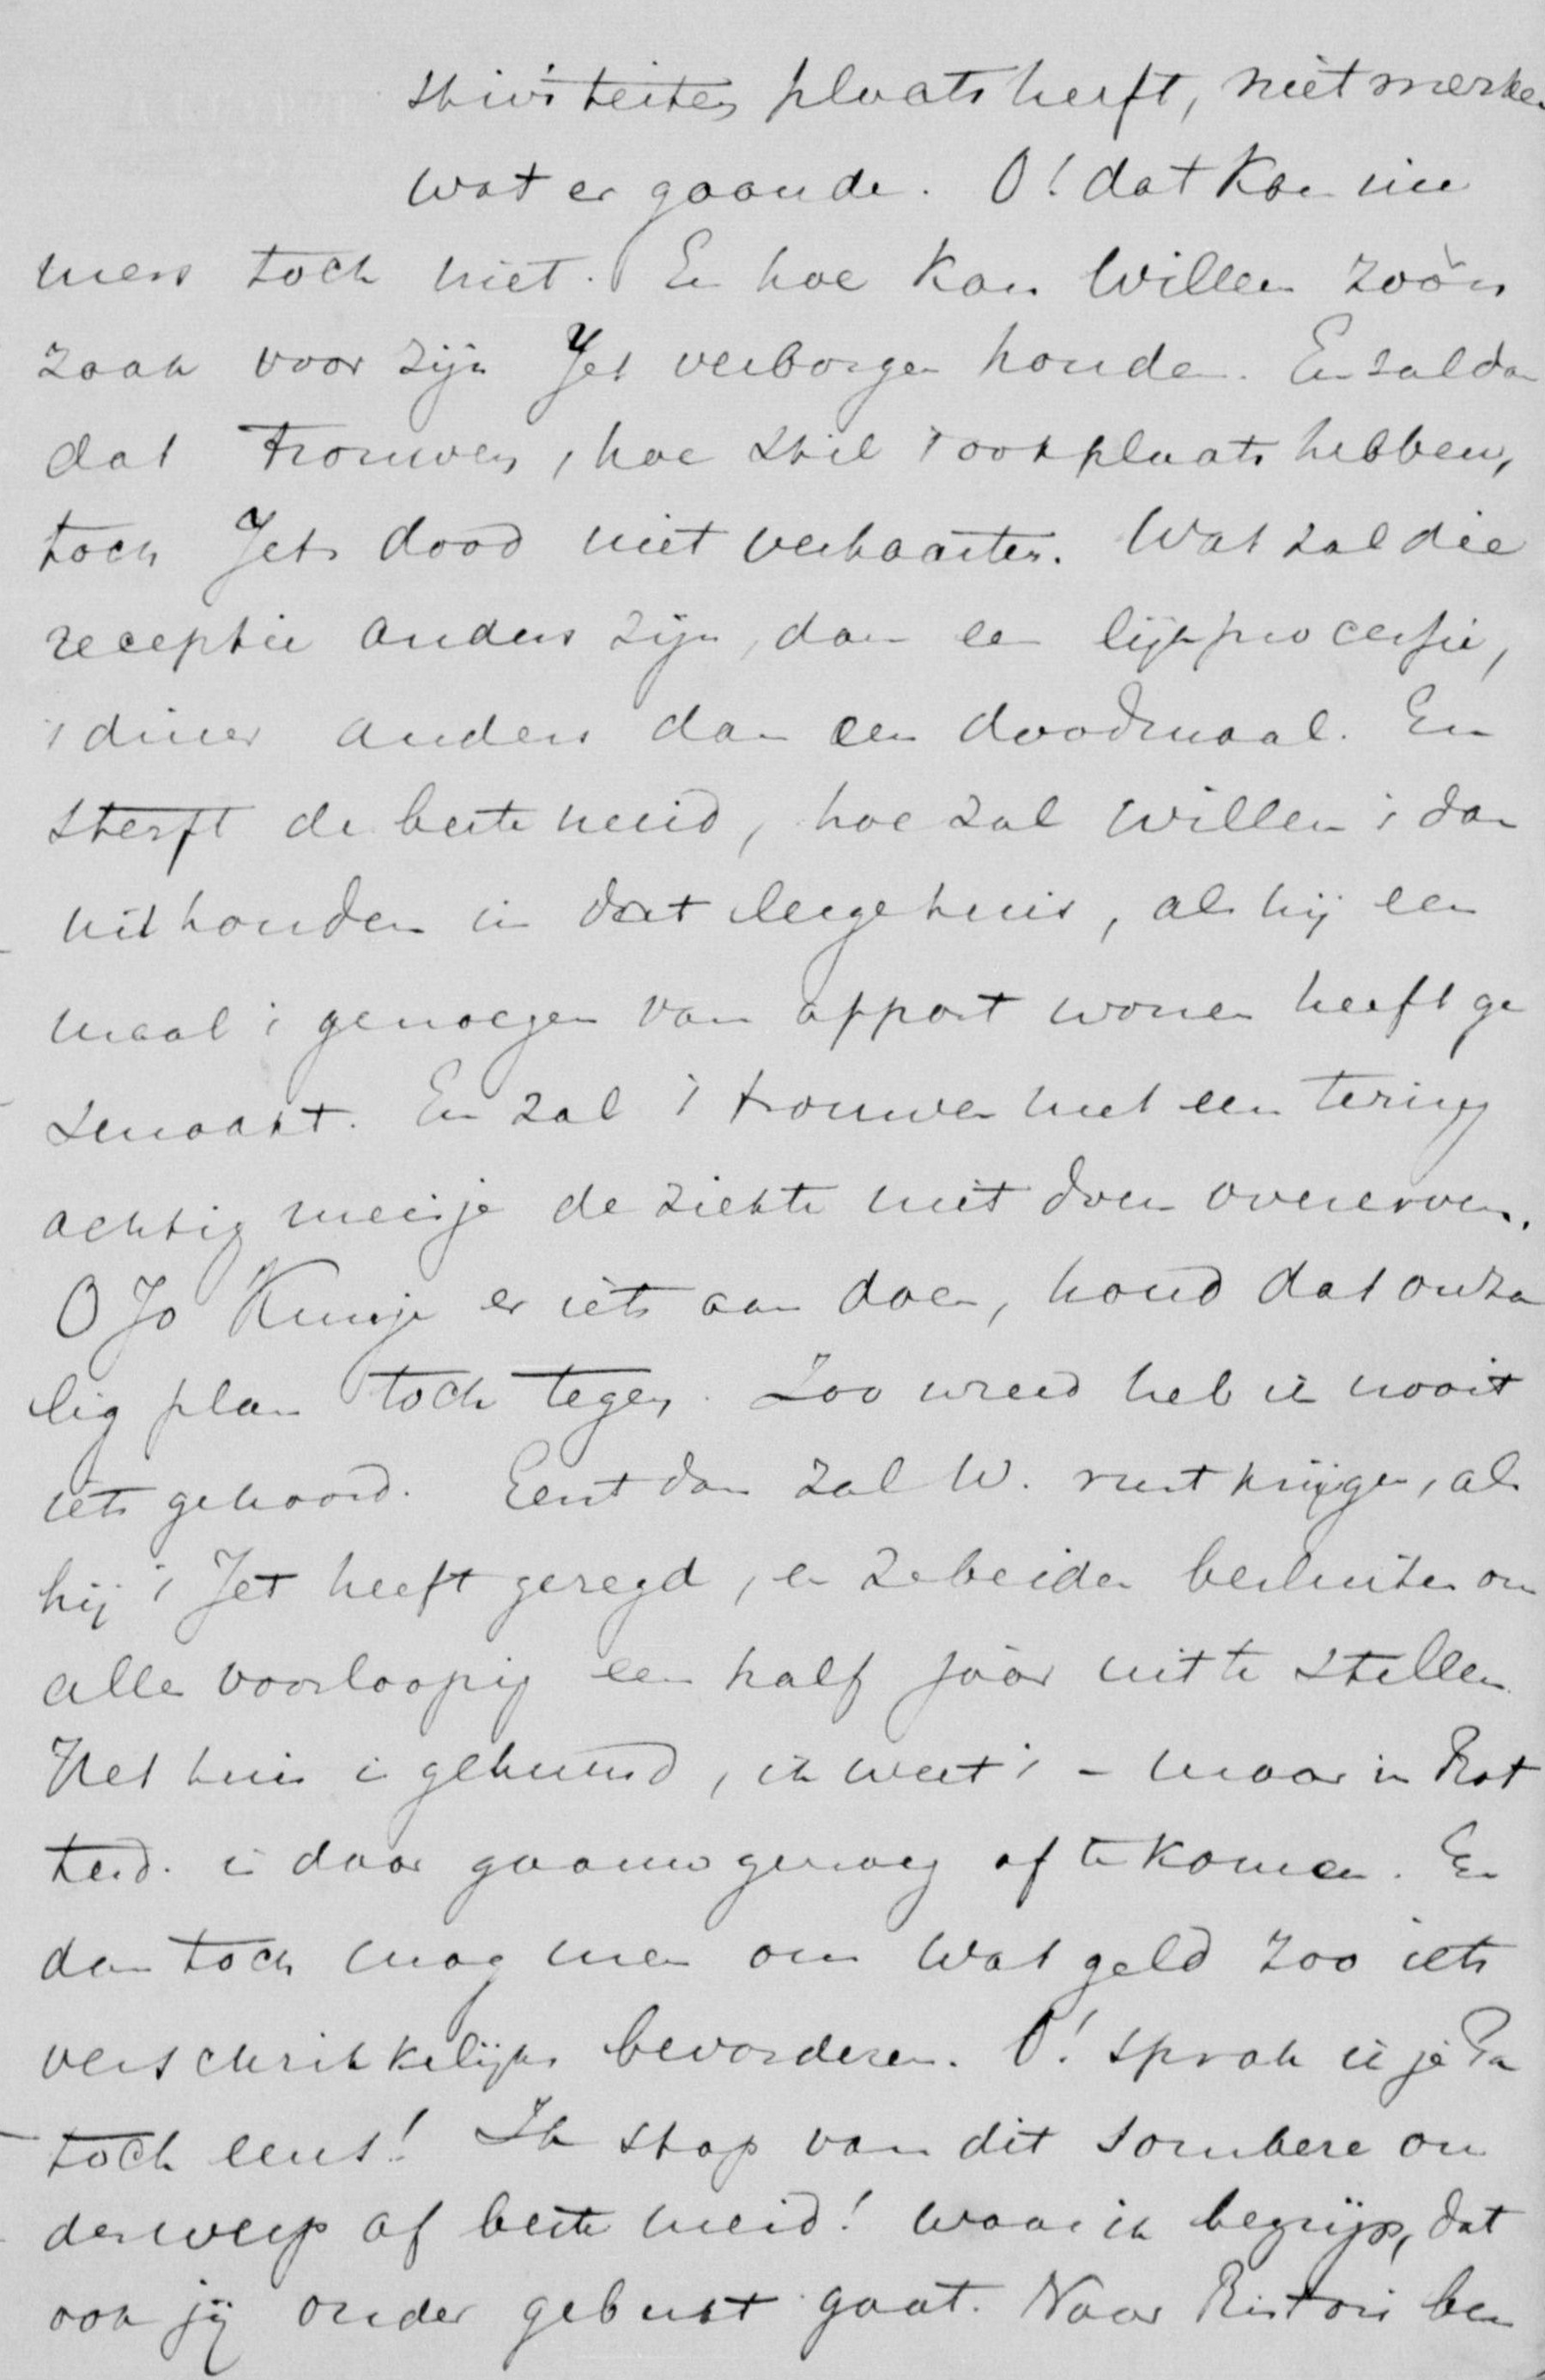 stiviteiten plaats heeft, niet merken
wat er gaande. O! dat kan im
mers toch niet. En hoe kan Willem zoo'n
zaak voor zijn Jet verborgen houden. En zal dan
dat trouwen, hoe stil 't ook plaats hebben,
toch Jets dood niet verhaasten. Wat zal die
receptie anders zijn, dan een lijkprocessie,
't diner anders dan een doodmaal. En
sterft de beste meid, hoe zal Willem 't dan
uithouden in dat leege huis, als hij een
maal 't genoegen van apport wonen heeft ge
smaakt. En zal 't trouwen met een tering
achtig meisje de ziekte niet doen overerven.
O Jo kun je er iets aan doen, houd dat onza
lig plan toch tegen. Zoo wreed heb ik nooit
iets gehoord. Eerst dan zal W. rust krijgen, als
hij 't Jet heeft gezegd, en ze beiden besluiten om
alles voorloopig een half jaar uit te stellen.
Het huis is gehuurd, ik weet 't - maar in Rot
terd. is daar gaauw genoeg af te komen. En
dan toch mag men om wat geld zoo iets
verschrikkelijks bevorderen. O! sprak ik je Pa
toch eens! Ik stap van dit sombere on
derwerp af beste meid! waar ik begrijp, dat
ook jij onder gebukt gaat. Naar Ristori ben